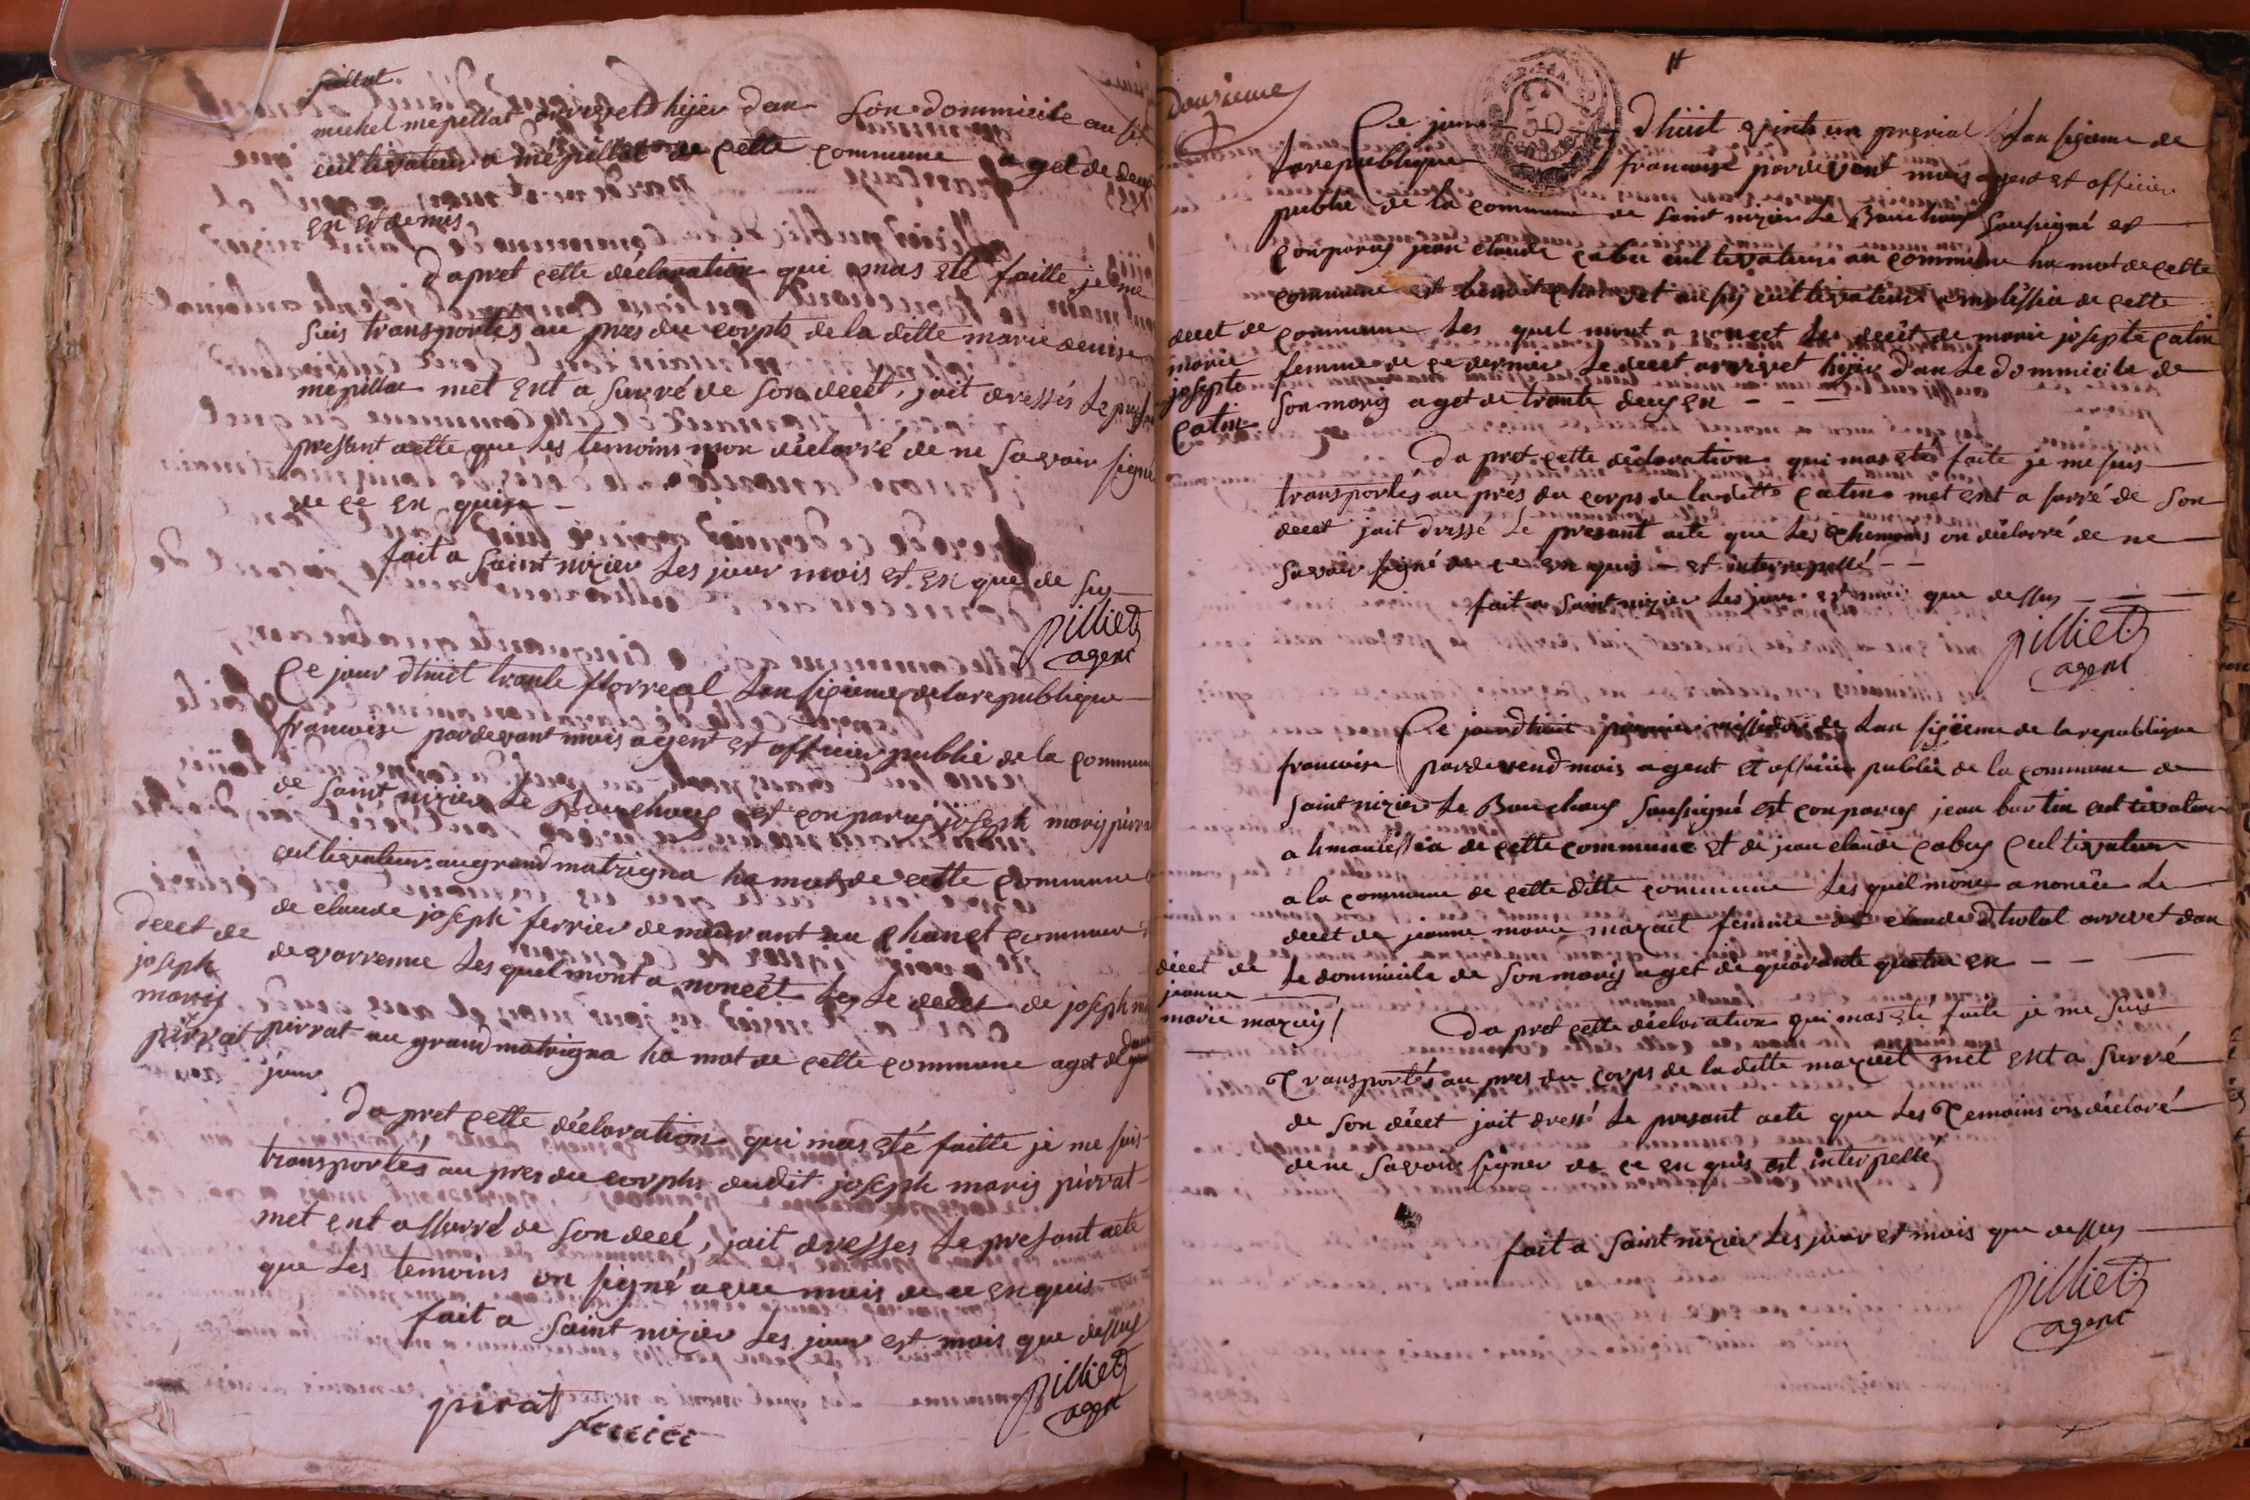 michel mepillat arrivet hijer dan son dommicile au sit
cultivateur a mepillat de cette commune aget de deux
en et demis
dapret cette déclaration qui mas eté faitte je me
suis transportés au pres du corph de la ditte marie denise
mepillat met ent a surré de son decét, jait dressés le
presant actte que les temoins mon déclarré de ne savoir signé
de ce en quise
fait a saint nizier les jour mois et en que de sus
pilliet
agent
decet de
joseph
maris
pirrat
Ce jour dhuit trante florreal lan sizieme de la republique
francoise pardevant mois agent et officier public de la commune
de saint nizier le Bouchoux et conparus joseph maris pirrat
cultivateur au grand matrigna ha mot de cette commune
de claude joseph ferrier demeurant au chanet commune
de varrenne les quel mont a noncét le decet de joseph
pirrat au grand matrigna ha mot de cette commune aget de
jour
da pret cette déclaration qui mas eté faitte je me suis
transportés au pres du corphs dudit joseph maris pirrat
met ent a ssurré de son decé, jait dresses le presant acte
que les temoins on signé avec mois de ce en quis
fait a saint nizier les jour et mois que dessus
pilliet
agent
pirat
ferrier
Douzieme
Ce jour dhuit vint un prerial lan sizieme de
la republique francoise pardevant mois agent et officier
public de la commune de saint nizier le Bouchoux sousigné et
conparus jean claude cabu cultivateur au commune ha mot de cette
commune et benoit charvet ausis cultivateur a de cette
commune les quel mont a noncet le decét de marie josepte catin
femme de ce dernier le decet arrivet hijer dan le dommicile de
son maris aget de trante deux en
decet de
marie
josepte
catin
da pret cette déclaration qui mas etés faite je me suis
transportés au prés du corps de la ditte catin met ent a surré de son
decet jait dressé le presant acte que les themoins on déclarré de ne
savoir signé de ce en quis et interrepellé
fait a saint nizier les jour et mois que dessus
pilliet
agent
Ce jour dhuit premier messidor de lan sizieme de la republique
francoise pardevend mois agent et officier public de la commune de
saint nizier le Bouchoux sousigné est conparus jean burtin cultivateur
a de cette commune et de jean claude cabus cultivateur
a la commune de cette ditte commune les quel mont a noncée le
decet de jeanne marie mazuit femme de claude arrivet dan
le dommicile de son maris aget de quarante quatre en
décet de
jeanne
marie mazuis
Da pret cette déclaration qui mas eté faite je me suis
Transportés au pres du corps de la ditte mazuit met ent a surré
de son décet jait dressé le presant acte que les Temoins on déclaré
de ne savoir signer de ce en quis est interpellé
fait a saint nizier les jour et mois que dessus
pilliet
agent